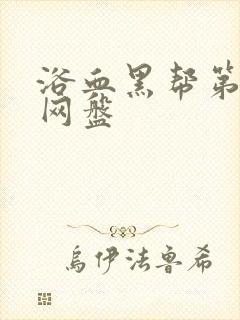 浴血黑帮第
网盘
乌伊法鲁希